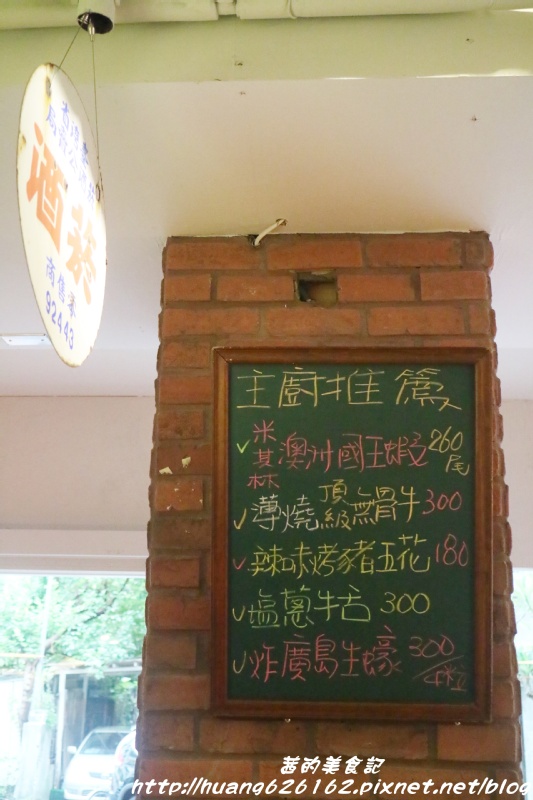 菸酒
92443
主廚推薦
米其林 澳洲國王蝦 260/尾
薄燒頂級無骨牛 300
辣味烤豬五花 180
塩蔥牛舌 300
炸廣島生蠔 300/4粒
茜的美食記
http://huang626162.pixnet.net/blog